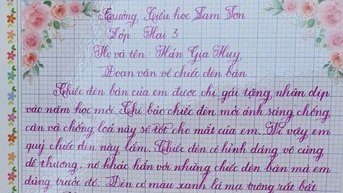 Trường Tiểu học Tam Sơn
Lớp Hai 3
Họ và tên: Hán Gia Huy
Đoạn văn về chiếc đèn bàn
Chiếc đèn bàn của em được chị gái tặng nhân dịp
vào năm học mới. Chị bảo chiếc đèn mới ánh sáng chống
cận và chống loá này sẽ tốt cho mắt của em. Vì vậy em
quý chiếc đèn này lắm. Chiếc đèn có hình dáng vô cùng
dễ thương, nó khác hẳn với những chiếc đèn bàn mà em
dùng trước đó. Đèn có màu xanh lá mạ trông rất bắt